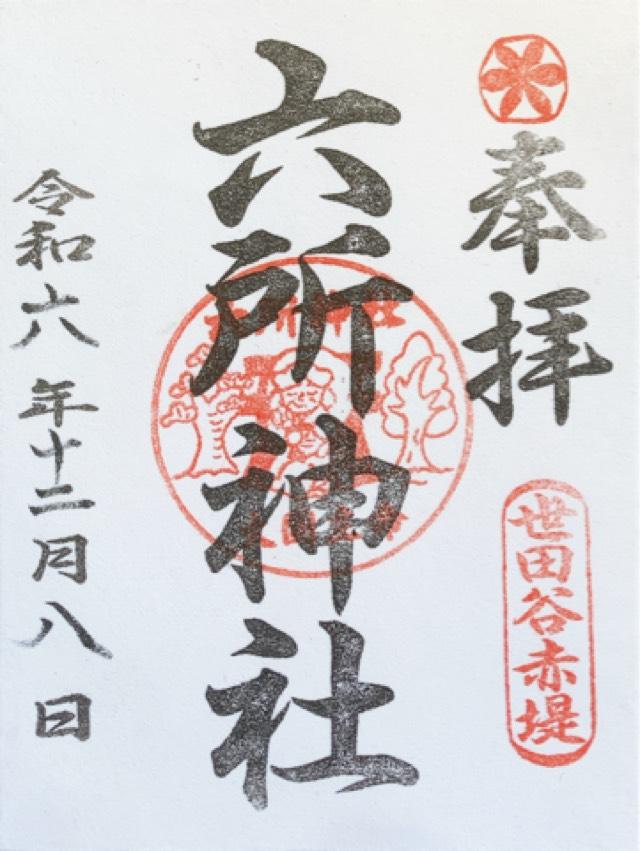 奉拝
世田谷赤堤
六所神社
令和六年十二月八日